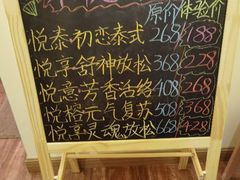 原价 体验价
悦泰初恋泰式 268 188
悦享舒神放松 368 228
悦意芳香活络 408 268
悦榕元气复苏 508 368
悦享灵魂放松 668 428